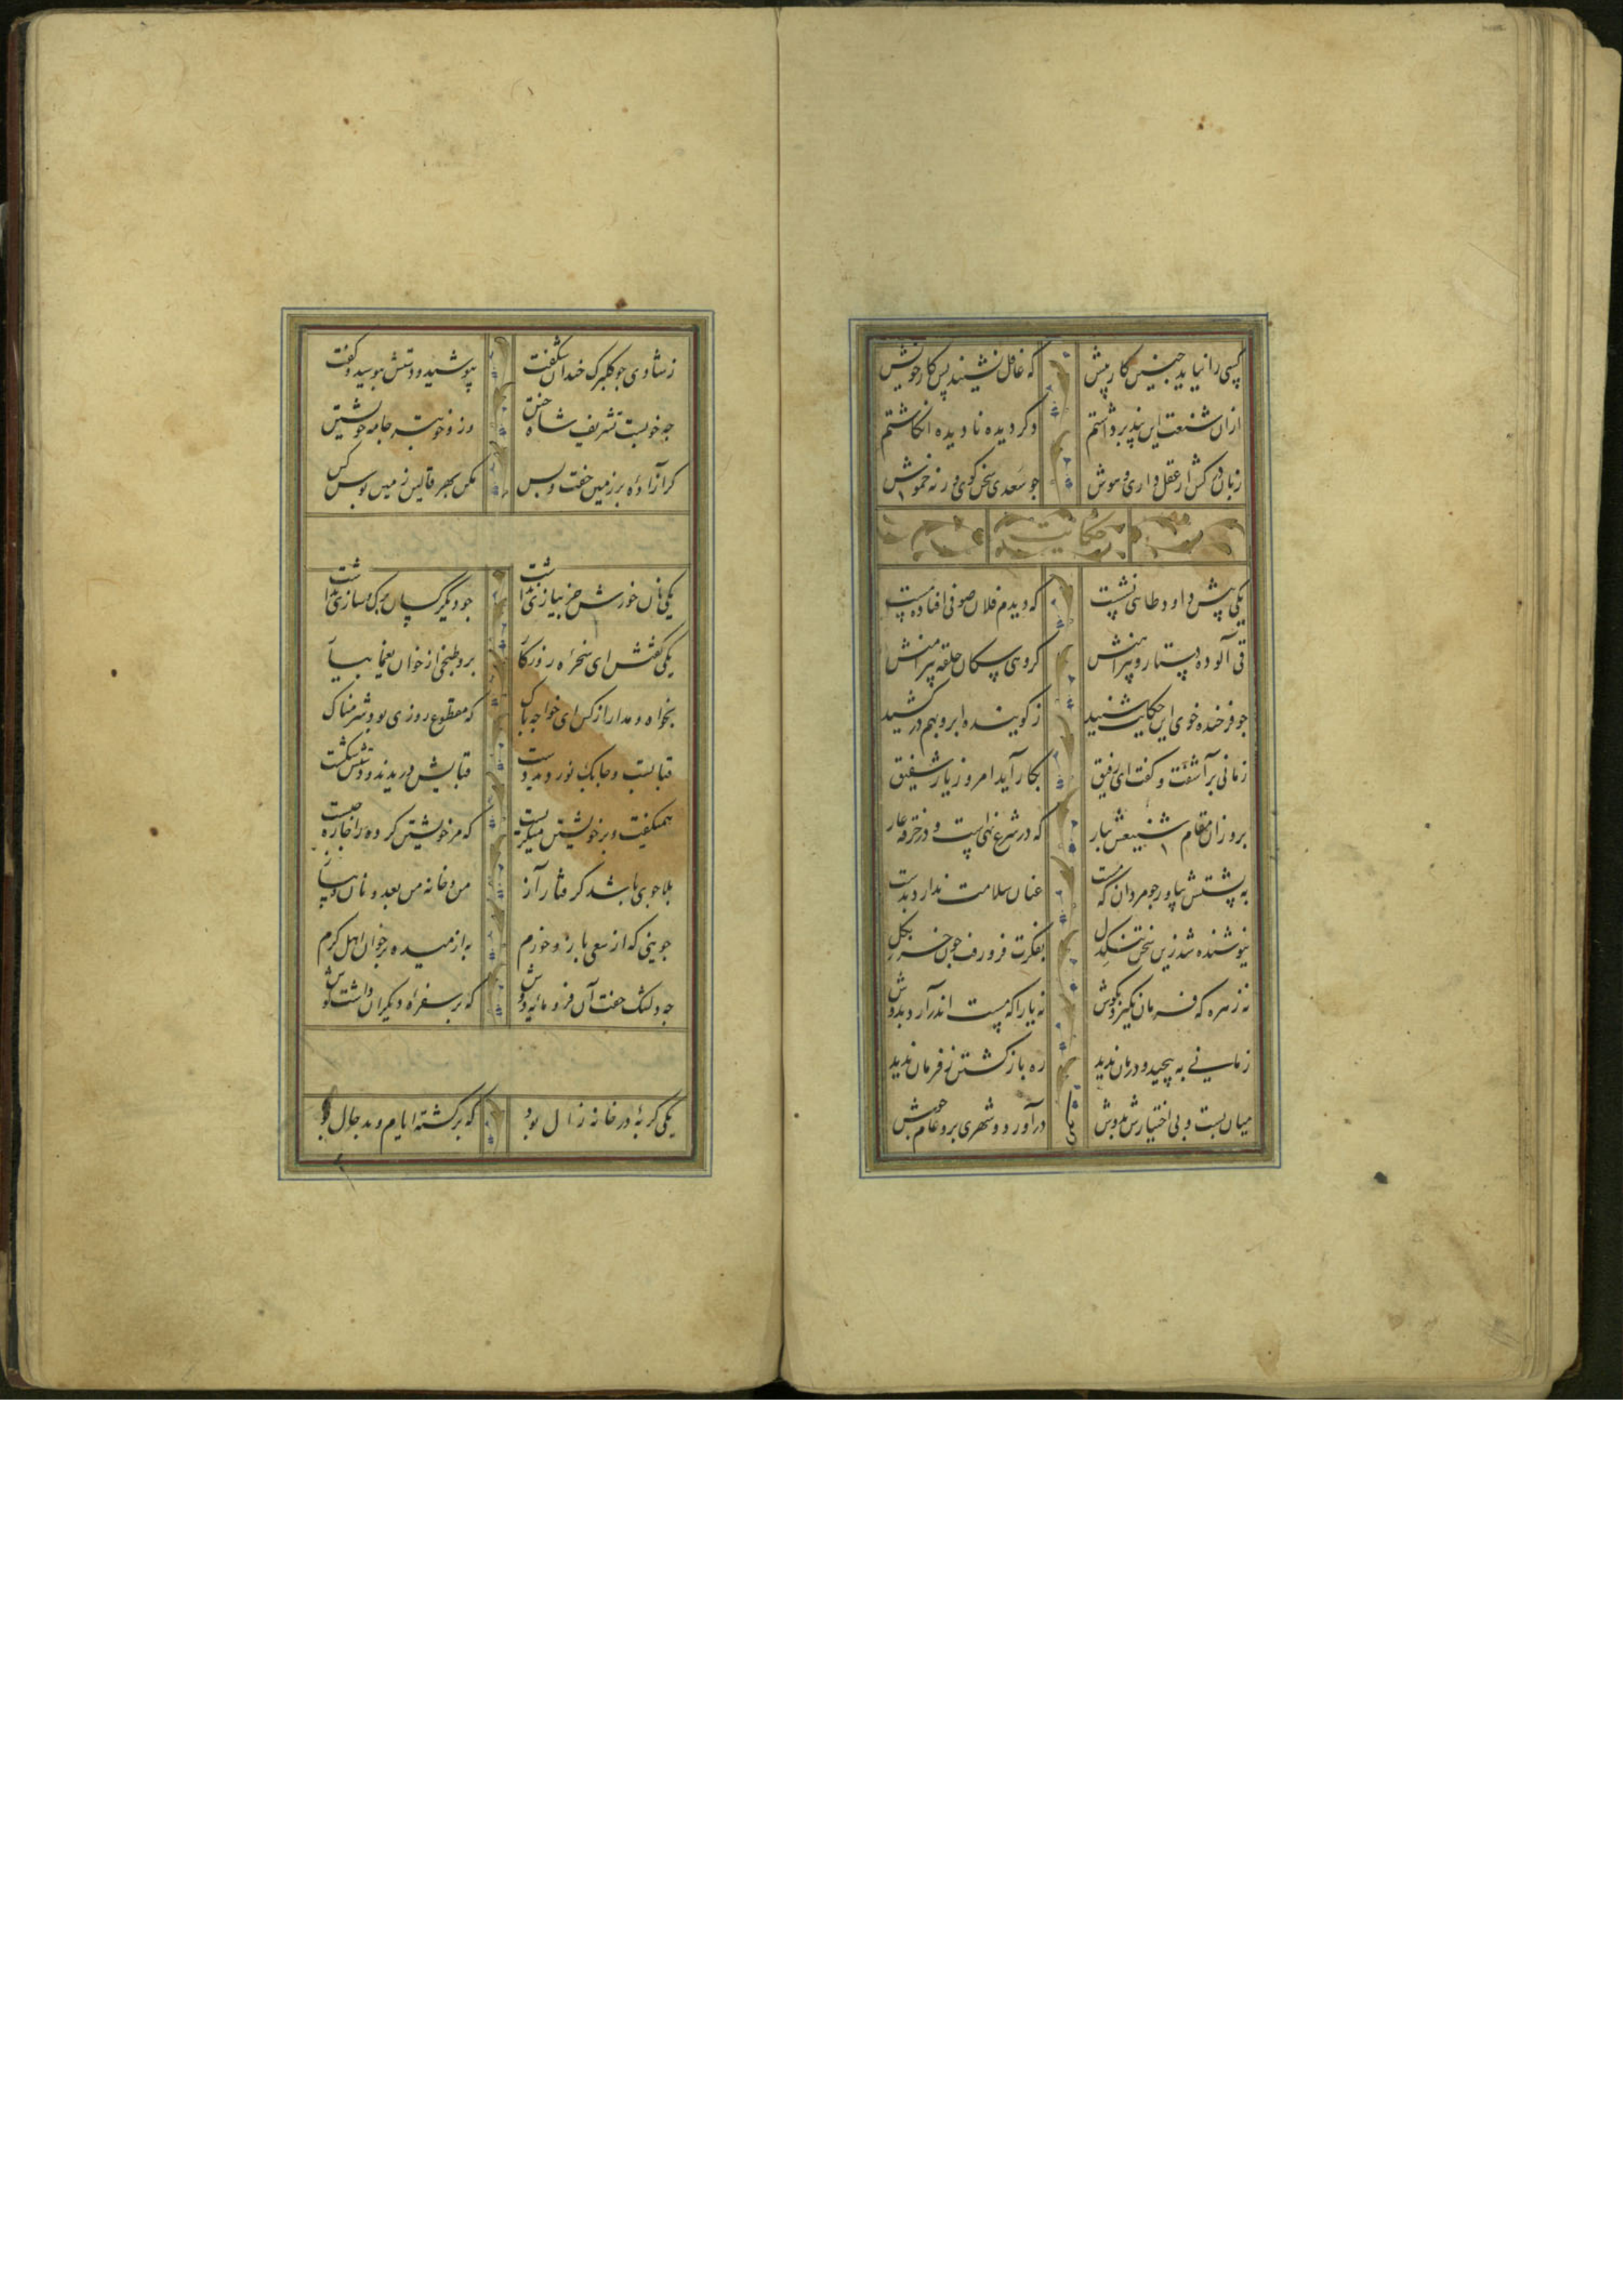 کسی را نیاید چنین کار پیش که غافل نشیند پس کار خویش
ازان شنعت این پند برداشتم دکر دیده نادیده انکاشتم
زبان درکش ار عقل داری و هوش جو سعدی سخن کوی ور نه خموش
حکایت
یکی پیش داود طائی نشست که دیدم فلان صوفی افتاده مست
قی آلوده دستار و پیراهنش کروهی سکان حلقه پیرامنش
جو فرخنده خوی این حکایت شنید ز کوینده ابرو بهم در کشید
زمانی برآشفت و کفت ای رفیق بکار آید امروز یار شفیق
برو زان مقام شنیعش بیار که در شرع نهی است و در خرقه عار
به پشتش بیاور جو مردان که مست عنان سلامت ندارد بدست
نیوشنده شد زین سخن تنکدل بفکرت فرو رفت جون خر بکل
نه زهره که فرمان نکیرد بکوش نه یارا که مست اندر آرد بدوش
زمانی به پیچید و درمان ندید ره باز کشتن ز فرمان ندید
میان بست و بی اختیارش بدوش درآورد و شهری برو عام جوش
ز شادی جو کلبرک خندان شکفت بپوشید و دستش ببوسید و کفت
جه خوبست تشریف شاه ختن وزو خوبتر جامه خویشتن
کر آزادهٔ بر زمین خفت و بس مکن بهر قالی زمین بوس کس
یکی نان خورش جز پیازی نداشت جو دیکر کسان برک و سازی نداشت
یکی کفتش ای سخرهٔ روزکار برو طبخی از خوان یغما بیار
بخواه و مدار از کس ای خواجه باک که مقطوع روزی بود شرمناک
قبا بست و جابک نوردید دست قبایش دریدند و دستش شکست
همیکفت و بر خویشتن میکریست که مر خویشتن کرده را جاره جیست
بلا جوی باشد کرفتار آز من و خانه من بعد و نان و پیاز
جوینی که از سعی بازو خورم به از میده بر خوان اهل کرم
جه دلتنک خفت آن فرومایه دوش که بر سفرهٔ دیکران داشت کوش
یکی کربه در خانه زال بود که برکشته ایام و بد حال بود